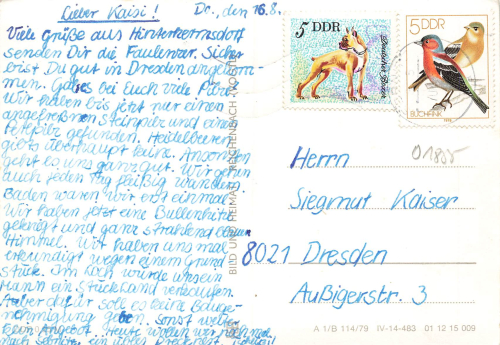 Lieber Kaisi! Do., den 16.8.
Viele Grüße aus Hinterhermsdorf
senden Dir die Faulenzer. Sicher
bist Du gut in Dresden angekom-
men. Gab es bei Euch viele Pilze?
Wir haben bis jetzt nur einen
angefressenen Steinpilz und einen
gefunden. Heidelbeeren
gibts überhaupt keine. Ansonsten
geht es uns ganz gut. Wir gehen
auch jeden Tag fleißig wandern.
Baden waren wir erst einmal.
Wir haben jetzt eine Bullenhitze
gekriegt und ganz strahlend blauen
Himmel. Wir haben uns mal
erkundigt wegen einem Grund
stück. Im Loch würde uns ein
Mann ein Stück Land verkaufen.
Aber dafür soll es keine Bauge-
nehmigung geben. Sonst weiter
kein Angebot. Heute wollen wir
nach
5 DDR
Deutscher Boxer
5 DDR
BUCHFINK
BILD UND HEIMAT REICHENBACH (VOGTL)
01855
Herrn
Siegmut Kaiser
8021 Dresden
Außigerstr. 3
A 1/B 114/79 IV-14-483 01 12 15 009